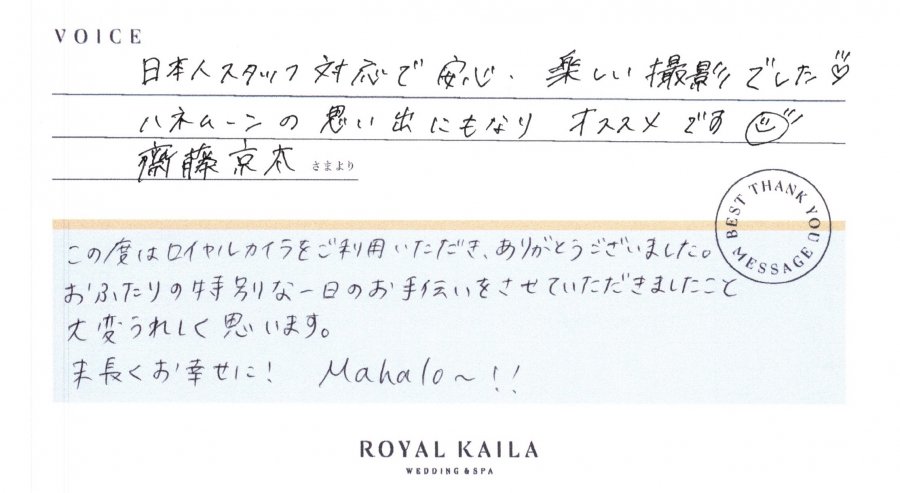 VOICE
日本人スタッフ対応で安心、楽しい撮影でした♡
ハネムーンの思い出にもなりオススメです
齋藤京本 さまより
BEST THANK YOU MESSAGE
この度はロイヤルカイラをご利用いただき、ありがとうございました。
おふたりの特別な一日のお手伝いをさせていただきましたこと
大変うれしく思います。
末長くお幸せに! Mahalo～!!
ROYAL KAILA
WEDDING & SPA